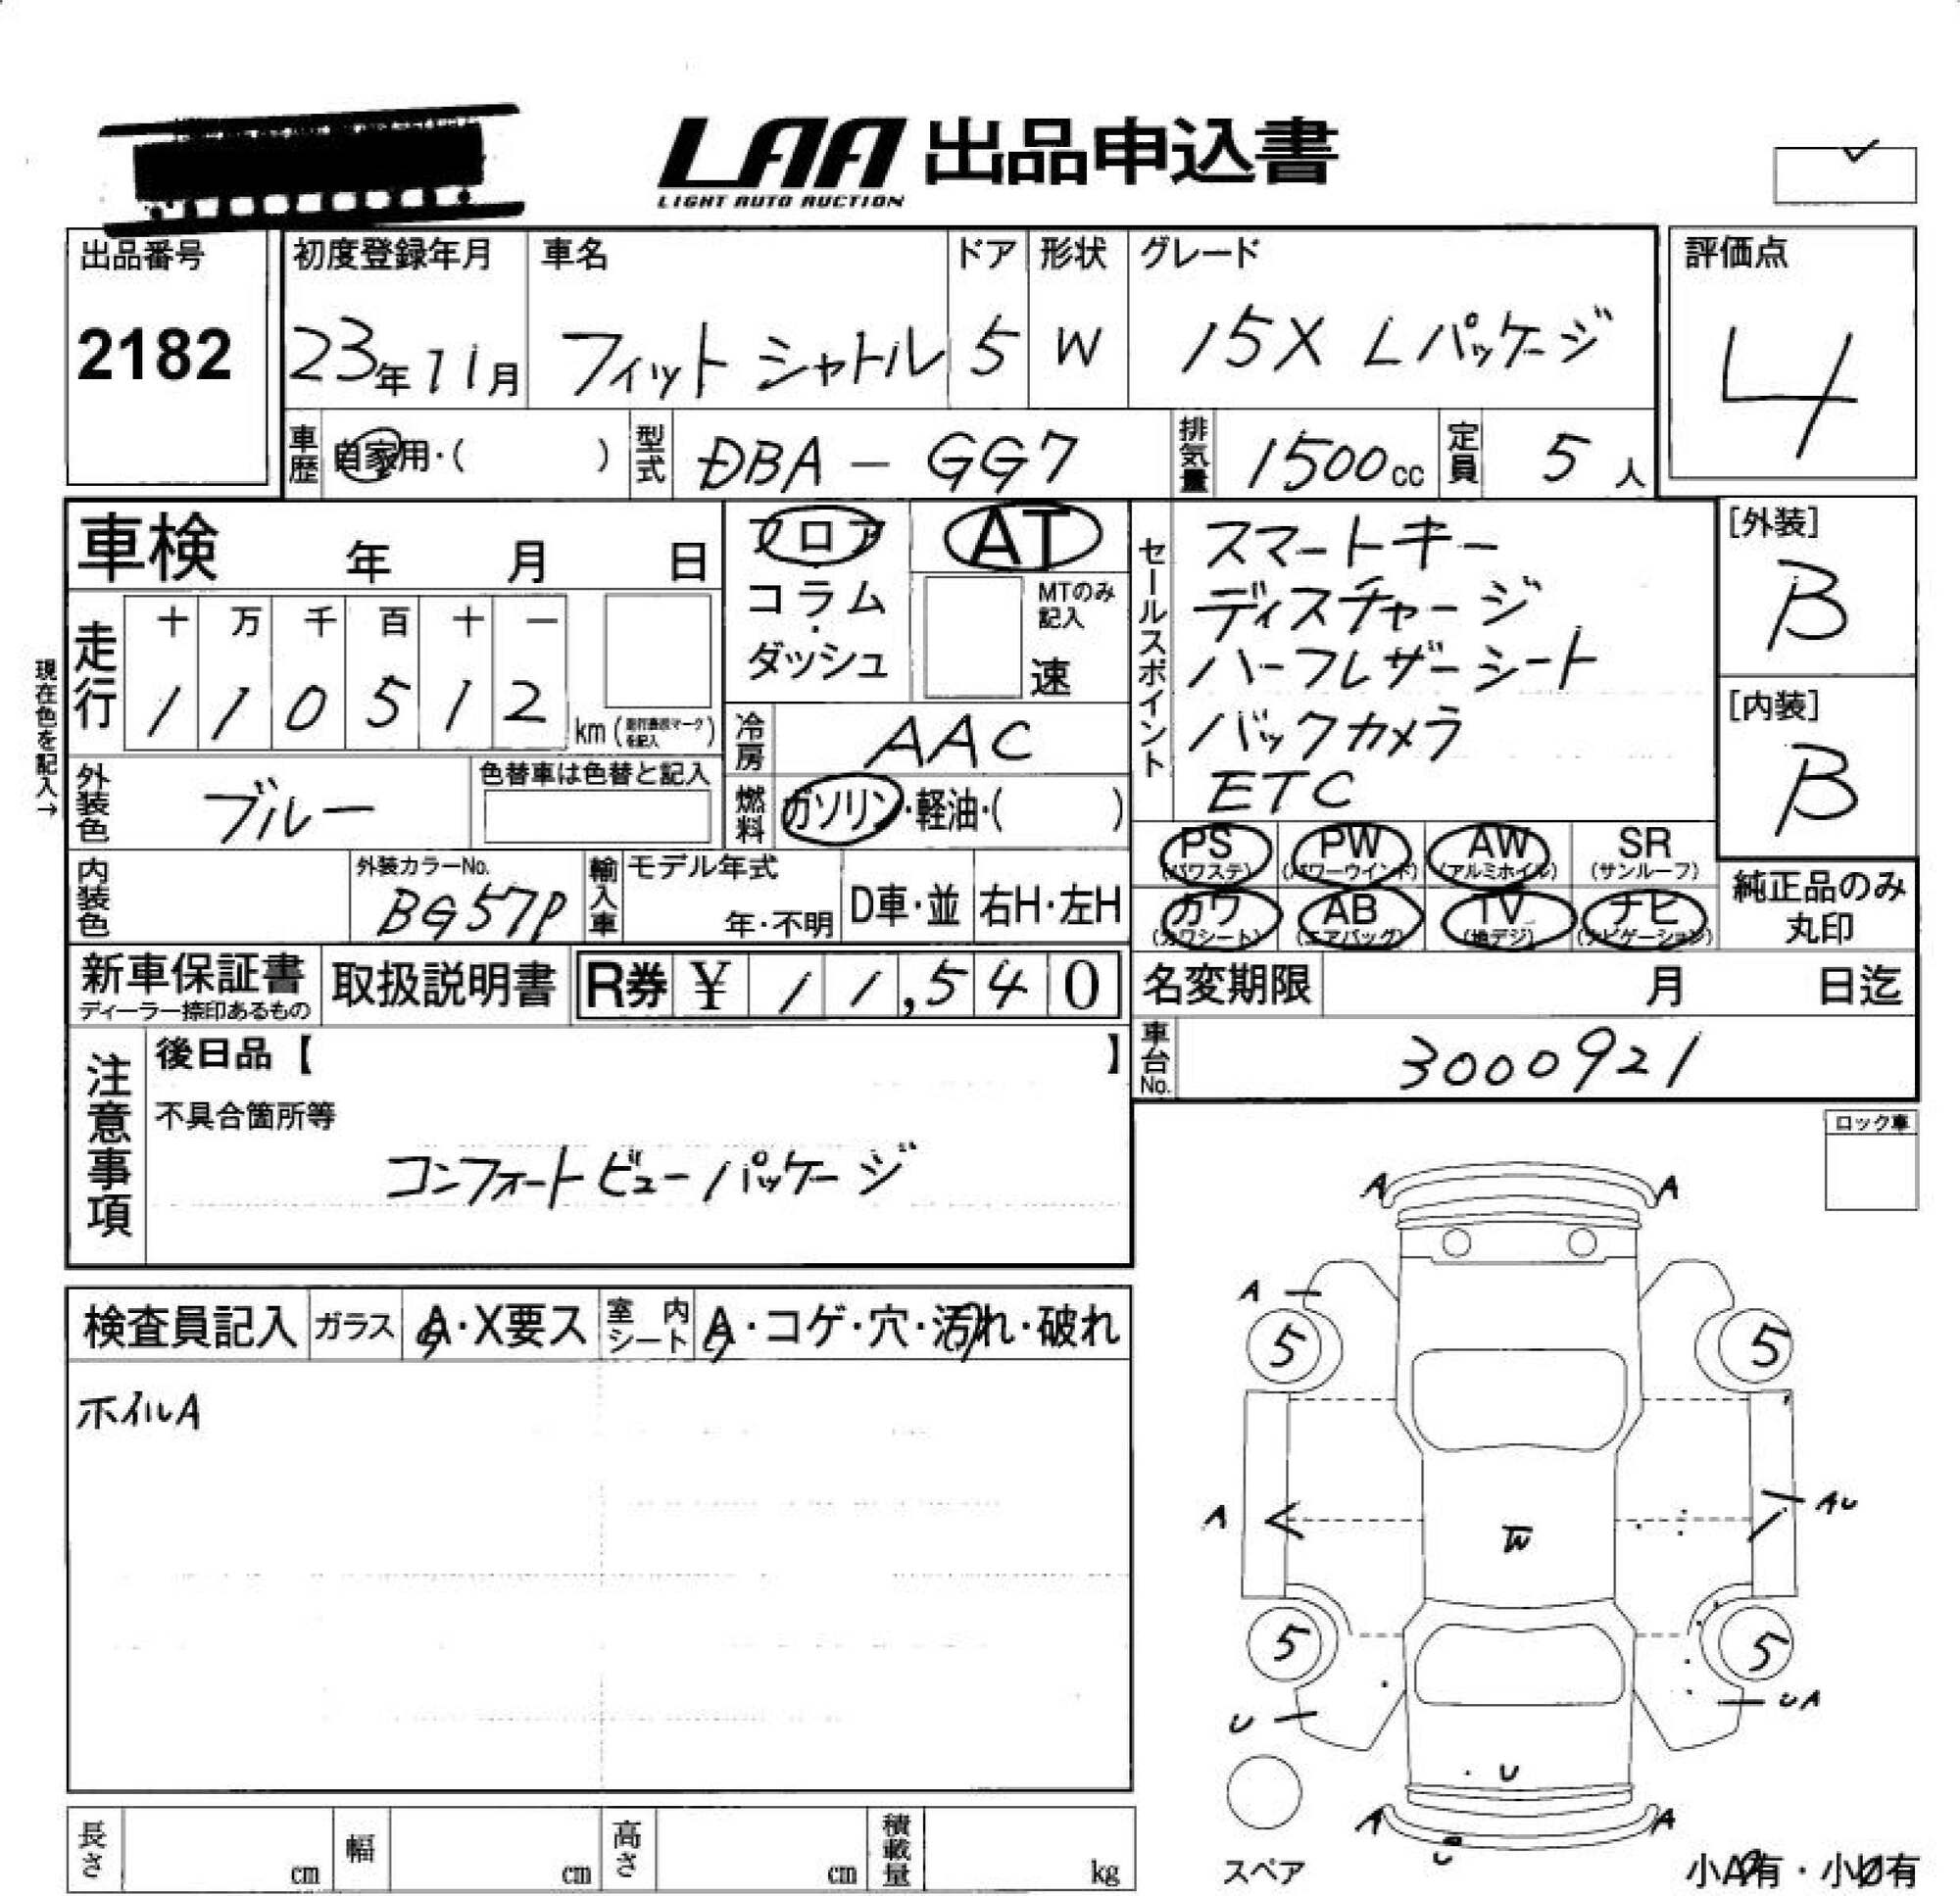 LAA 出品申込書
LIGHT AUTO AUCTION
出品番号
2182
初度登録年月
23年11月
車名
フィット シャトル
ドア
5
形状
W
グレード
15X Lパッケージ
評価点
4
車歴
自家用・( )
型式
DBA - GG7
排気量
1500cc
定員
5人
車検 年 月 日
現在色を記入→
走行
十 万 千 百 十 一
1 1 0 5 1 2
km
フロア
コラム
・
ダッシュ
AT
MTのみ記入
速
冷房
AAC
燃料
ガソリン・軽油・( )
外装色
ブルー
色替車は色替と記入
内装色
外装カラーNo.
BG57P
輸入車
モデル年式
年・不明
D車・並
右H・左H
セールスポイント
スマートキー
ディスチャージ
ハーフレザーシート
バックカメラ
ETC
[外装]
B
[内装]
B
PS
(パワステ)
PW
(パワーウインド)
AW
(アルミホイル)
SR
(サンルーフ)
カワ
(カワシート)
AB
(エアバッグ)
TV
(地デジ)
ナビ
(ナビゲーション)
純正品のみ
丸印
新車保証書
ディーラー捺印あるもの
取扱説明書
R券 ¥ 11,540
名変期限 月 日迄
車台No.
3000921
注意事項
後日品【 】
不具合箇所等
コンフォートビューパッケージ
ロック車
検査員記入
ガラス
A・X要ス
室内シート
A・コゲ・穴・汚れ・破れ
ホイルA
A A
A
5 5
A AU
W
5 5
U UA
U
A A
U
スペア
小A有・小U有
長さ cm
幅 cm
高さ cm
積載量 kg